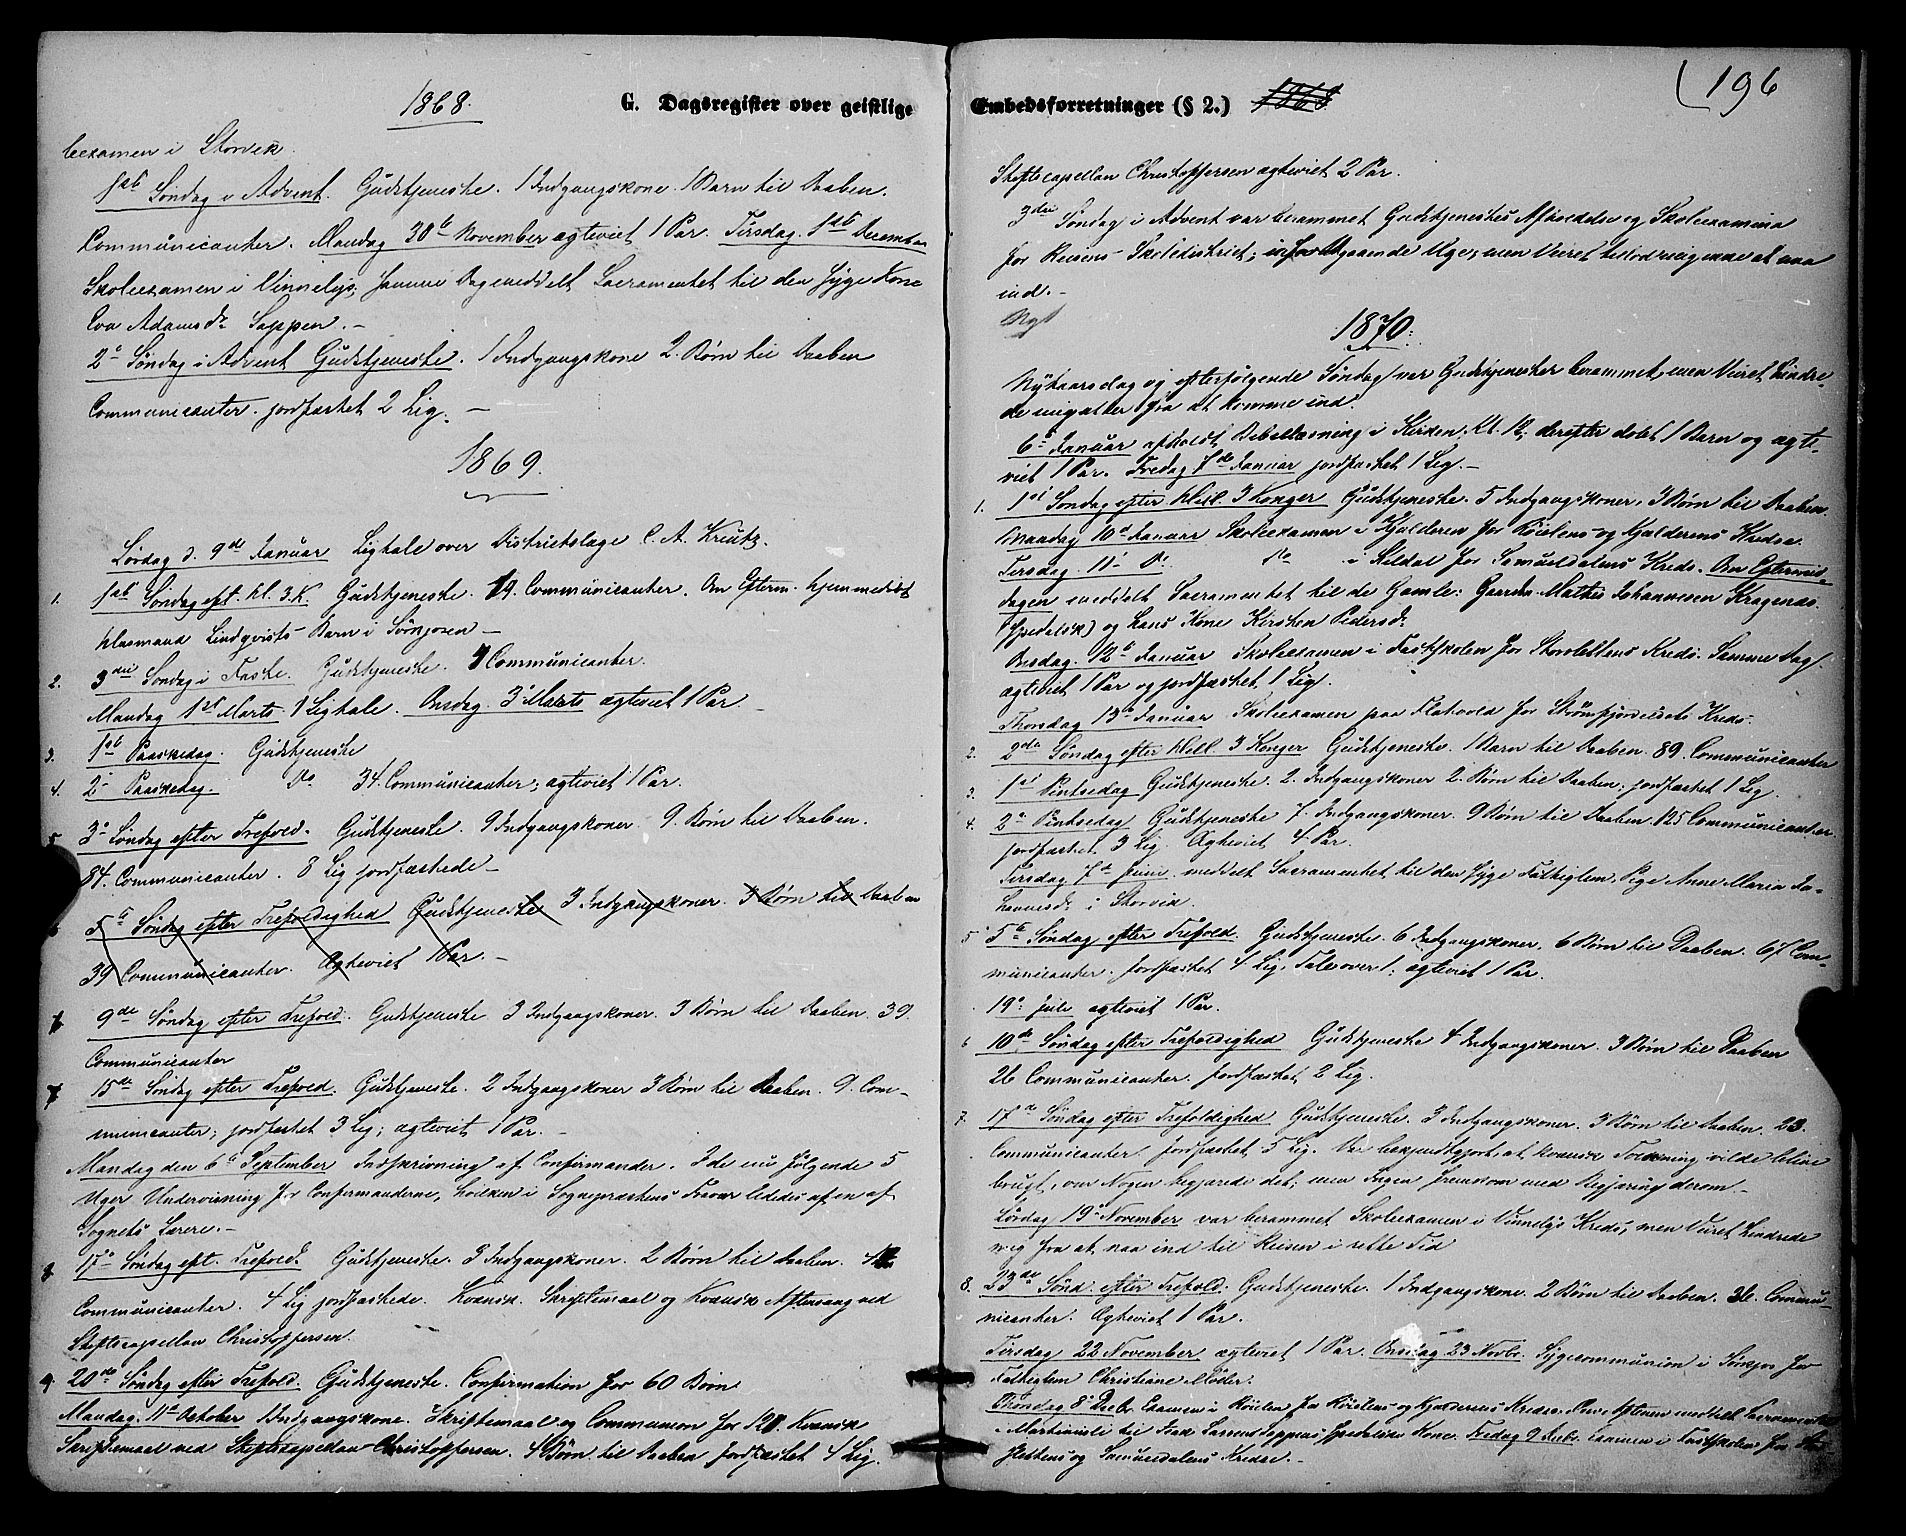 1868.
G. Dagsregister over geistlige
bexamen i Storvik.
1ste Søndag i Advent. Gudstjeneste. 1 Indgangskone. 1 Barn til Daaben.
Communicanter. Mandag 30te November agteviet 1 Par. Tirsdag 1ste December
Skoleexamen i Vinnelys, samme Dag meddelt Sacramentet til den syge Kone
Eva Adamsdr Sappen. –
2den Søndag i Advent Gudstjeneste. 1 Indgangskone 2 Børn til Daaben
Communicanter. jordfæstet 2 Lig. –
1869.
Lørdag d. 9de Januar Ligtale over Districtslæge C. A. Kreutz.
1. 1ste Søndag eft. Hl. 3. K. Gudstjeneste. 19 Communicanter. Om Efterm. hjemmedøbt
Klasmand Lindqvists Barn i Sørkjosen –
2. 3die Søndag i Faste. Gudstjeneste. 7 Communicanter.
Mandag 1ste Marts 1 Ligtale. Onsdag 3die Marts agteviet 1 Par –
3. 1ste Paaskedag. Gudstjeneste
4. 2den Paaskedag. Do 34 Communicanter; agteviet 1 Par.
5. 3die Søndag efter Trefold. Gudstjeneste. 9 Indgangskoner. 9 Børn til Daaben.
84. Communicanter. 8 Lig jordfæstede –
6 5te Søndag efter Trefoldighed Gudstjeneste 3 Indgangskoner. 3 Børn til Daaben
39 Communicanter. Agteviet 1 Par. –
6 9de Søndag efter Trefold. Gudstjeneste 3 Indgangskoner. 3 Børn til Daaben. 39
Communicanter
7 15de Søndag efter Trefold. Gudstjeneste. 2 Indgangskoner 3 Børn til Daaben. 9. Com-
municanter; jordfæstet 3 Lig; agteviet 1 Par. –
Mandag den 6te September Indskrivning af Confirmander. I de nu følgende 5
Uger Undervisning for Confirmanderne, hvilken i Sognepræstens Fravær lededes af en af
Sognets Lærere. –
8 17de Søndag eft. Trefold. Gudstjeneste. 3 Indgangskoner. 2 Børn til Daaben.
Communicanter. 4 Lig jordfæstede. Kvænsk Skriftemaal og Kvænsk Aftensang ved
Stiftscapellan Christophersen.
9. 20de Søndag efter Trefold. Gudstjeneste. Confirmation for 60 Børn
Mandag 11te October 1 Indgangskone. Skriftemaal og Communion for 120. Kvænsk
Skriftemaal ved Stiftscapellan Christophersen. 4 Børn til Daaben Jordfæstet 4 Lig.
Embedsforretninger (§ 2.) 1868
196
Stiftscapellan Christophersen agteviet 2 Par.
3die Søndag i Advent var berammet Gudstjenestes Afholdelse og Skoleexamina
for Reisens Skoledistrict, i den paafølgende Uge, men Veiret tillod mig ikke at naa
ind. –
Nyt
1870.
Nytaarsdag og efterfølgende Søndag var Gudstjenester berammet, men Veiret hindre-
de mig atter fra at komme ind.
6te Januar afholdt Bibellæsning i Kirken. Kl. 12; derefter døbt 1 Barn og agte-
viet 1 Par. Fredag 7de Januar jordfæstet 1 Lig. –
1. 1ste Søndag efter Hell. 3 Konger Gudstjeneste. 5 Indgangskoner. 3 Børn til Daaben.
Mandag 10de Januar Skoleexamen i Kjelderen for Røielens og Kjelderens Kredse.
Tirsdag 11te Do Do i Kildal for Samueldalens Kreds. Om Eftermid-
dagen meddelt Sacramentet til de Gamle: Gaardm. Mathis Johannesen Kragenæs
(spedalsk) og hans Kone Kirsten Pedersdr
Onsdag 12te Januar Skoleexamen i Fastskolen for Storslettens Kreds. Samme Dag
agteviet 1 Par og jordfæstet 1 Lig.
Thorsdag 13de Januar Skoleexamen paa Flatvold for Strømfjordeidets Kreds.
2. 2den Søndag efter Hell. 3 Konger Gudstjeneste. 1 Barn til Daaben. 89. Communicanter
3. 1ste Pintsedag Gudstjeneste. 2. Indgangskoner 2. Børn til Daaben; jordfæstet 1 Lig.
4. 2den Pintsedag Gudstjeneste 7. Indgangskoner. 9 Børn til Daaben. 125 Communicanter.
jordfæstet 3 Lig. Agteviet 4 Par.
Tirsdag 7de Juni meddelt Sacramentet til den syge Fattiglem, Pige Anne Maria Jo-
hannesdr i Storvik.
5 5te Søndag efter Trefold. Gudstjeneste. 6 Indgangskoner. 6 Børn til Daaben. 67 Com-
municanter. Jordfæstet 4 Lig, Tale over 1; agteviet 1 Par.
19de Juli agteviet 1 Par.
6 10de Søndag efter Trefoldighed Gudstjeneste 4 Indgangskoner. 3 Børn til Daaben
26 Communicanter. Jordfæstet 2 Lig.
7. 17de Søndag efter Trefoldighed Gudstjeneste. 3 Indgangskoner. 3 Børn til Daaben. 23.
Communicanter. Jordfæstet 5 Lig. Var bekjendtgjort, at kvænsk Tolkning vilde blive
brugt, om Nogen begjærede det; men Ingen fremkom med Begjæring derom –
Lørdag 19de November var berammet Skoleexamen i Vinnelys Kreds, men Veiret hindrede
mig fra at naa ind til Reisen i rette Tid
8. 23de Sønd. efter Trefold. Gudstjeneste. 1 Indgangskone. 2 Børn til Daaben. 36. Commu-
nicanter. Agteviet 1 Par.
Tirsdag 22 November agteviet 1 Par. Onsdag 23 Novbr. Sygecommunion i Sørkjos for
Fattiglem Christiane Møller.
Thorsdag 8de Decb. Examen i Røielen for Røielens og Kjelderens Kredse. Om Aftenen meddelt Sacramentet
i Martianli til Isak Larsen Seppens spedalske Kone. Fredag 9 Decbr. Examen i Fastskolen for Stor-
slettens og Samueldalens Kredse. –